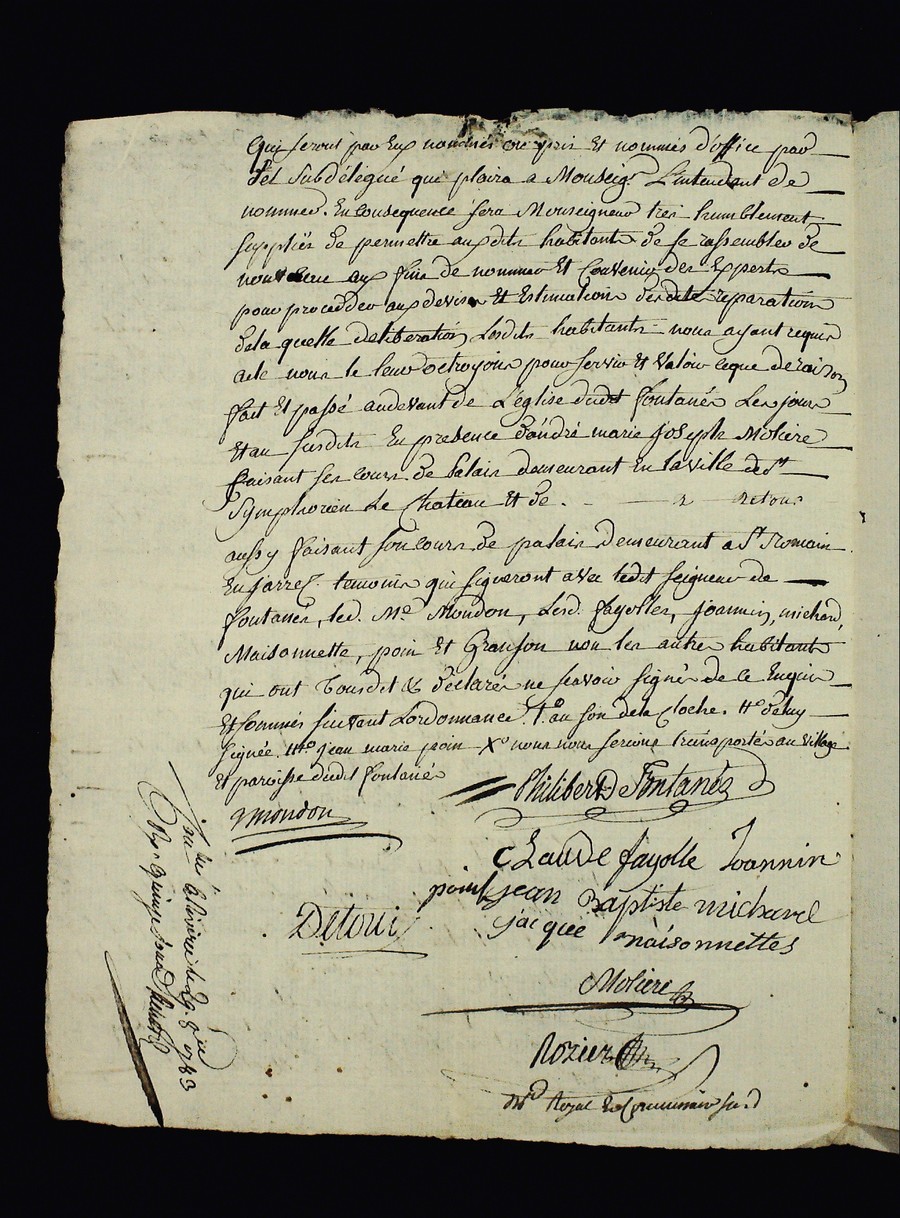 qui seront par Eux nommés ou pris Et nommés d'office par
tel Subdélégué qui plaira a Monseigr. L'intendant de
nommer. En consequence sera Monseigneur tres humblement
supplié de permettre aux dits habitants de se rassembler de
nouveau aux fins de nommer Et Convenir des Experts
pour proceder aux devis Et Estimations desdites reparations
de la quelle deliberation Lesdits habitants nous ayant requis
acte nous le leur octroyons pour servir Et Valoir ceque de raison
fait Et passé au devant de L'église dudit fontanès Les jours
Et an susdits En presence d'andré marie joseph Moliere
faisant ses cours de Palais demeurant En la ville de st
Symphorien Le Chateau Et de Detoui
aussy faisant son cours de palais demeurant a St Romain
En jarrez temoins qui signeront avec ledit seigneur de
fontanès, led. Me. Mondon, Lesd. fayolles, joannin, michard,
Maisonnette, poin Et Granjon non les autres habitants
qui ont Tous dit & déclaré ne scavoir signer de ce Enquis
Et sommés suivant Lordonnance. to. au son de la Cloche. tto de luy
signée. ttto. jean marie poin Xo nous nous serions transporté au Village
Et paroisse dudit fontanès
Philibert De Fontanès
Mondon
Claude fayolle Joannin
point jean Baptiste michard
Detoui
jacque maisonnettes
Moliere
Rozier
Nre Royal Et Commissaire susd
Con. a la riviere le 29. 8bre 1783